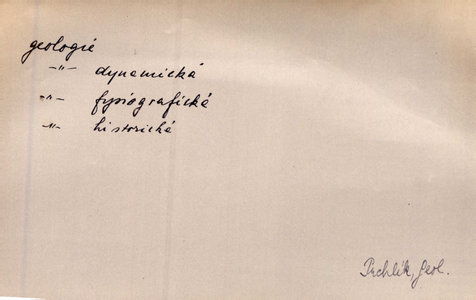 geologié
–"– dynamická
–"– fysiografické
–"– historické
Prchlík, geol.